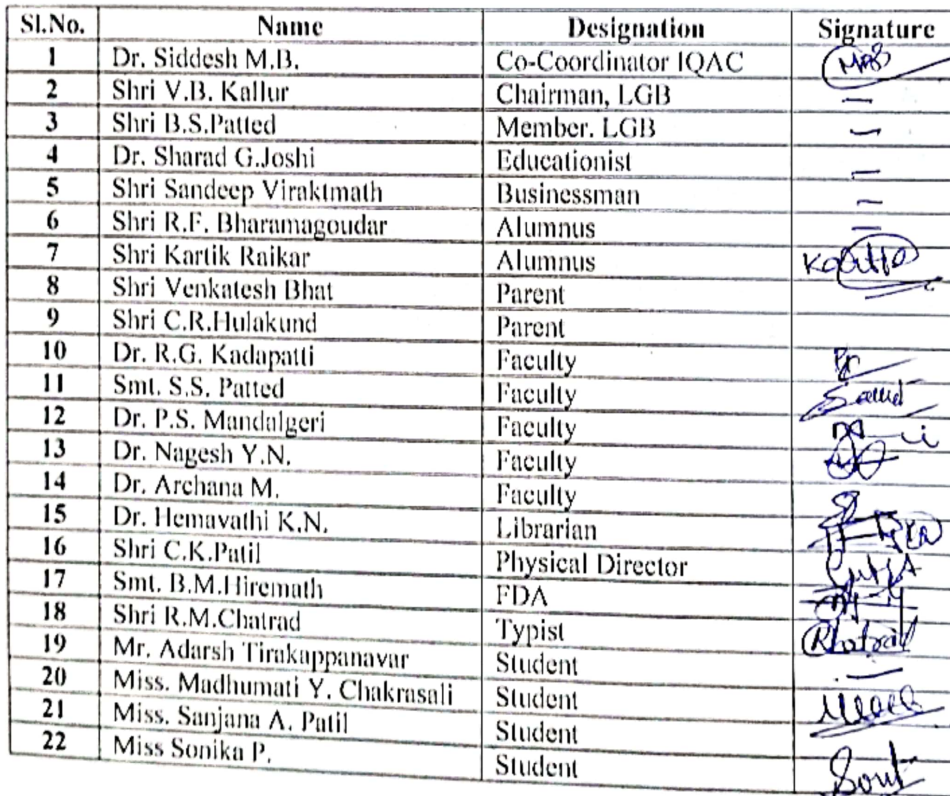 Sl.No. Name Designation Signature
1 Dr. Siddesh M.B. Co-Coordinator IQAC
2 Shri V.B. Kallur Chairman, LGB –
3 Shri B.S.Patted Member. LGB –
4 Dr. Sharad G.Joshi Educationist –
5 Shri Sandeep Viraktmath Businessman –
6 Shri R.F. Bharamagoudar Alumnus –
7 Shri Kartik Raikar Alumnus
8 Shri Venkatesh Bhat Parent
9 Shri C.R.Hulakund Parent
10 Dr. R.G. Kadapatti Faculty
11 Smt. S.S. Patted Faculty
12 Dr. P.S. Mandalgeri Faculty
13 Dr. Nagesh Y.N. Faculty
14 Dr. Archana M. Faculty
15 Dr. Hemavathi K.N. Librarian
16 Shri C.K.Patil Physical Director
17 Smt. B.M.Hiremath FDA
18 Shri R.M.Chatrad Typist
19 Mr. Adarsh Tirakappanavar Student –
20 Miss. Madhumati Y. Chakrasali Student
21 Miss. Sanjana A. Patil Student
22 Miss Sonika P. Student